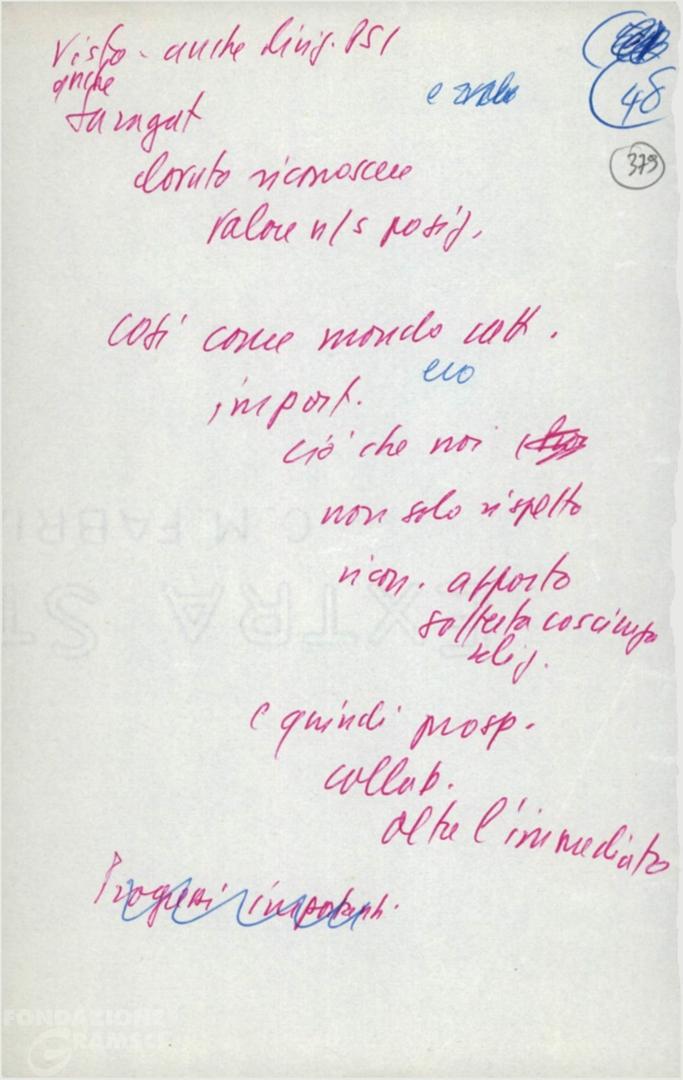 Visto - anche dirig. PSI
anche
Saragat
dovuto riconoscere
valore n/s posiz.
48
379
così come mondo catt.
eco
import.
ciò che noi
non solo rispetto
ricon. apporto
sofferta coscienza
relig.
e quindi prosp.
collab.
oltre l'immediato
Progressi importanti.
FONDAZIONE
GRAMSCI